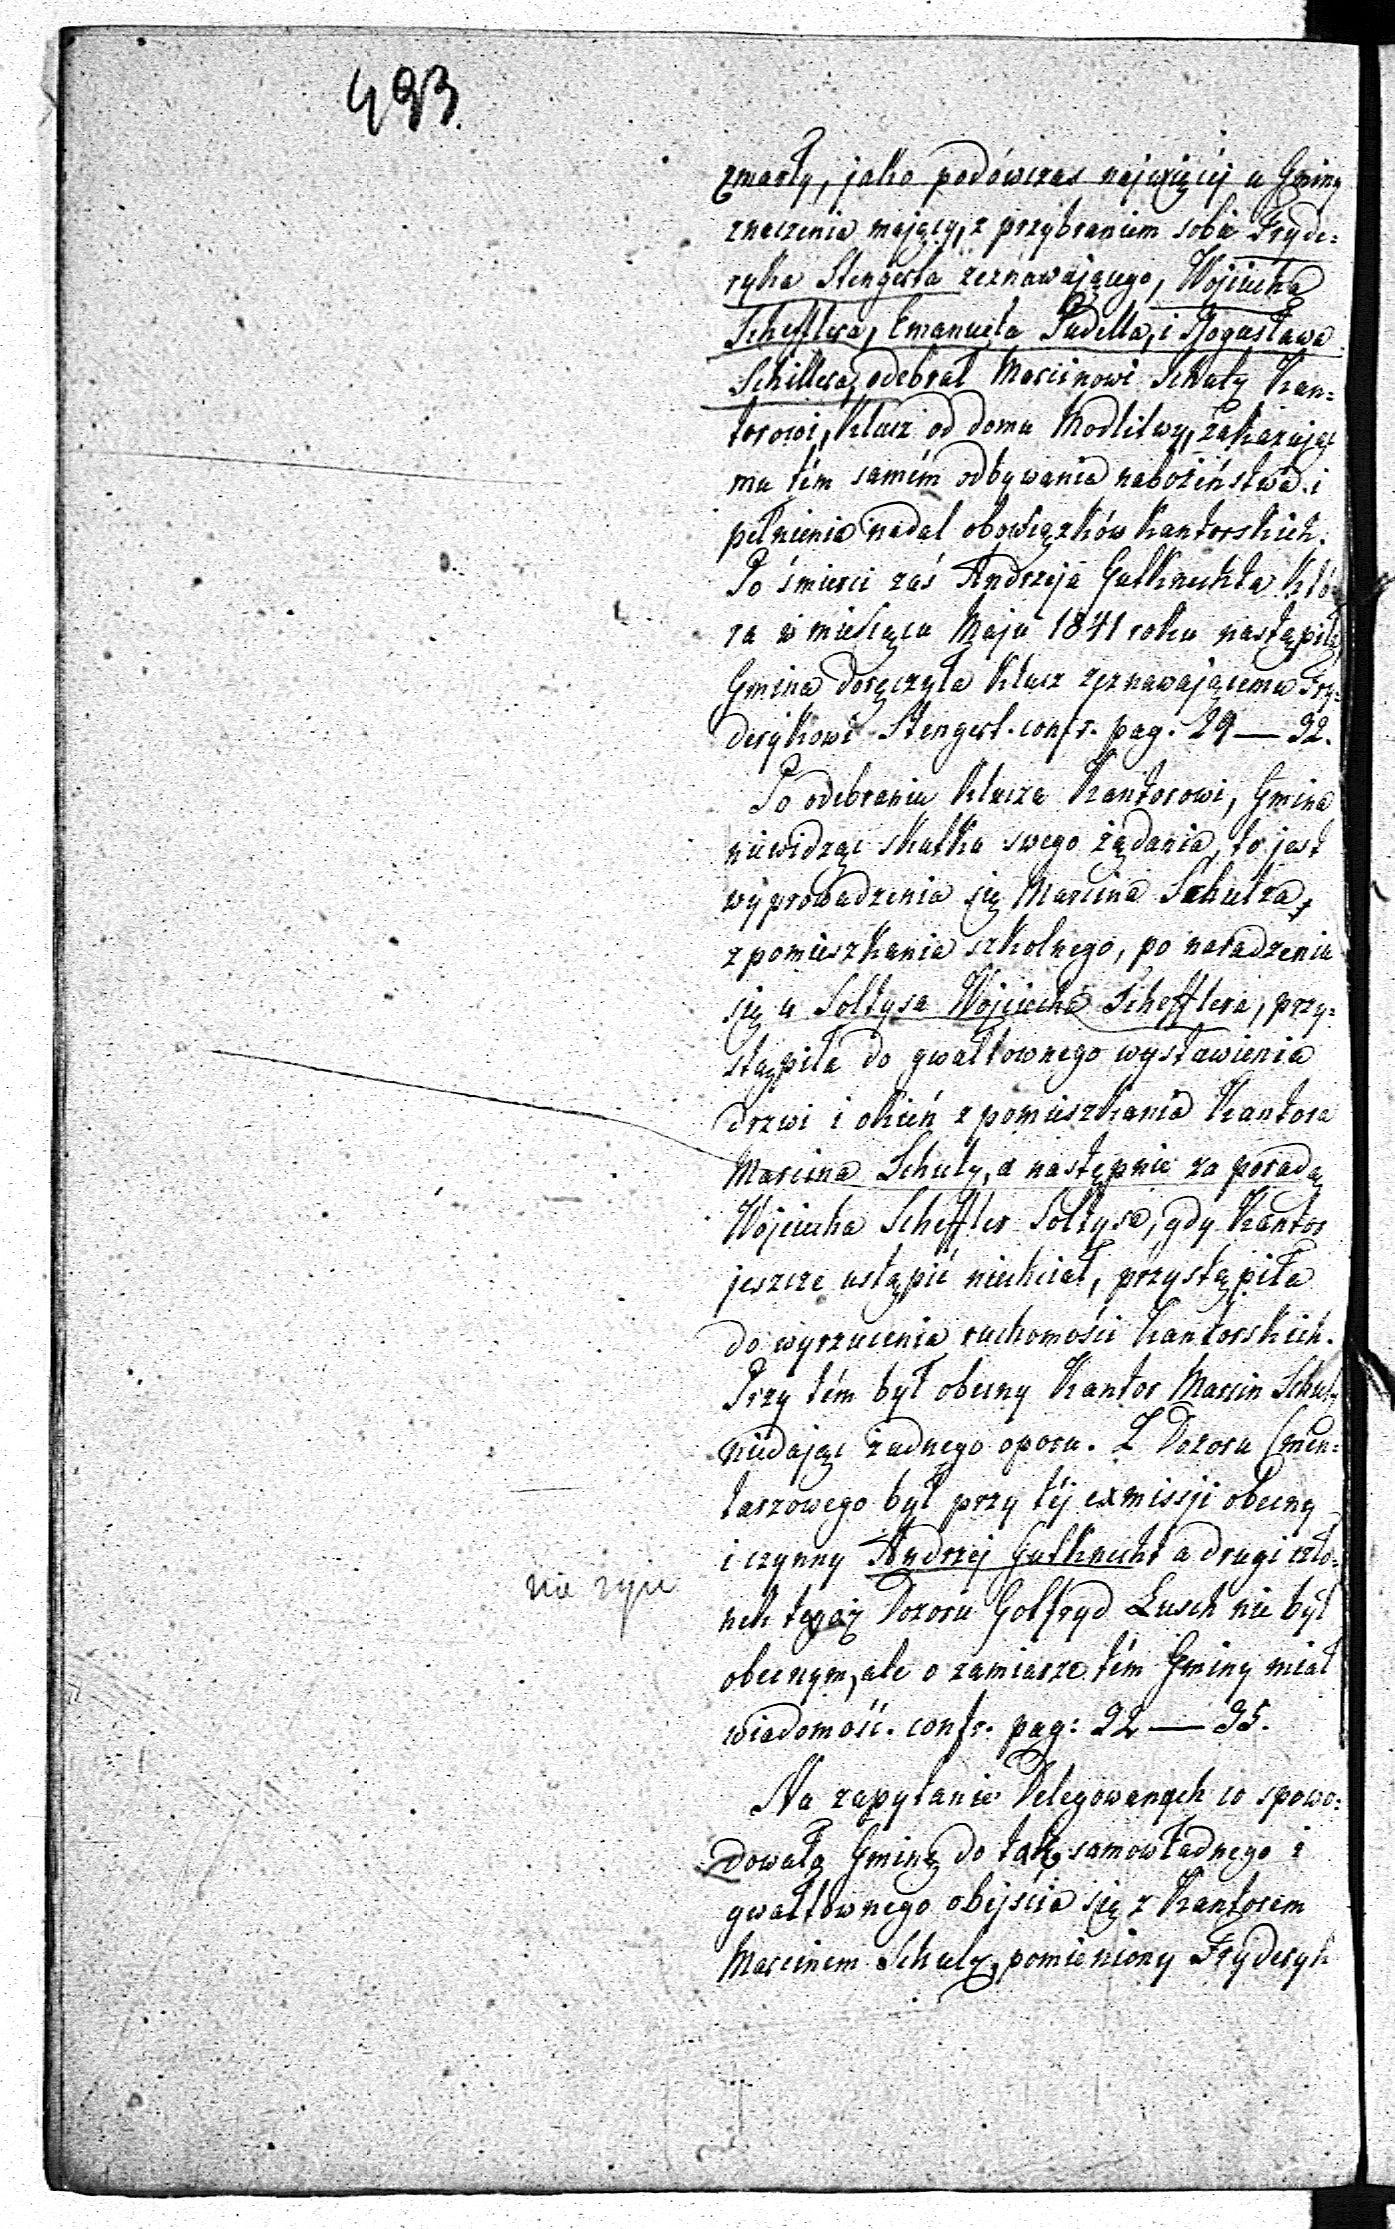 493.
zmarły, jako podówczas najwięcéj u Gminy
znaczenia mający, z przybraniem sobie Fryde-
ryka Stengerta zeznawającego, Wojciecha
Schefflera, Emanuela Padella, i Bogusława
Schillera, odebrał Marcinowi Schulz Kan-
torowi, Klucz od domu Modlitwy, zakazując
mu tém samém odbywania nabożeństwa i
pełnienia nadal obowiązków Kantorskich.
Po śmierci zaś Andrzeja Gutknechta któ-
ra w miesiącu Maju 1841 roku nastąpiła,
Gmina doręczyła Klucz zeznawającemu Fry-
derykowi Stengert. confr. pag. 29 — 32.
Po odebraniu Klucza Kantorowi, Gmina
niewidząc skutku swego żądania, to jest
wyprowadzenia się Marcina Schulza,
z pomieszkania szkolnego, po naradzeniu
się u Sołtysa Wojciecha Schefflera, przy-
stąpiła do gwałtownego wystawienia
drzwi i okień z pomieszkania Kantora
Marcina Schulz, a następnie za poradą
Wojciecha Scheffler Sołtysa, gdy Kantor
jeszcze ustąpić niechciał, przystąpiła
do wyrzucenia ruchomości Kantorskich.
Przy tém był obecny Kantor Marcin Schulz
niedając żadnego oporu. Z Dozoru Cmen-
tarzowego był przy téj exmissji obecny
i czynny Andrzej Gutknecht a drugi czło-
nie żyie
nek tegoż Dozoru Gotfryd Lusch nie był
obecnym, ale o zamiarze tém Gminy miał
wiadomość. confr. pag: 32 — 35.
Na zapytanie Delegowanych co spowo-
dowało Gminę do tak samowładnego i
gwałtownego obejścia się z Kantorem
Marcinem Schulz, pomieniony Fryderyk